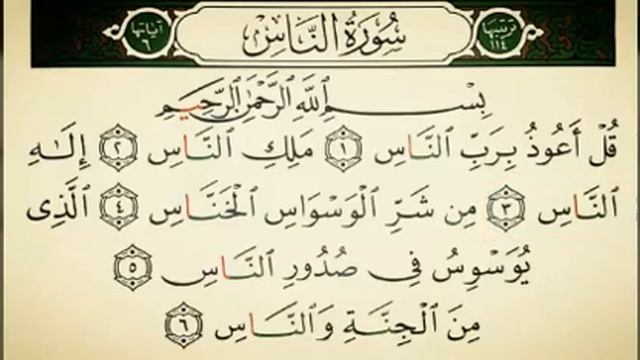 ترتيبها ١١٤ سُورَةُ النَّاسِ آياتها ٦
بِسْمِ ٱللَّهِ ٱلرَّحْمَٰنِ ٱلرَّحِيمِ
قُلْ أَعُوذُ بِرَبِّ ٱلنَّاسِ ١ مَلِكِ ٱلنَّاسِ ٢ إِلَٰهِ
ٱلنَّاسِ ٣ مِن شَرِّ ٱلْوَسْوَاسِ ٱلْخَنَّاسِ ٤ ٱلَّذِى
يُوَسْوِسُ فِى صُدُورِ ٱلنَّاسِ ٥
مِنَ ٱلْجِنَّةِ وَٱلنَّاسِ ٦